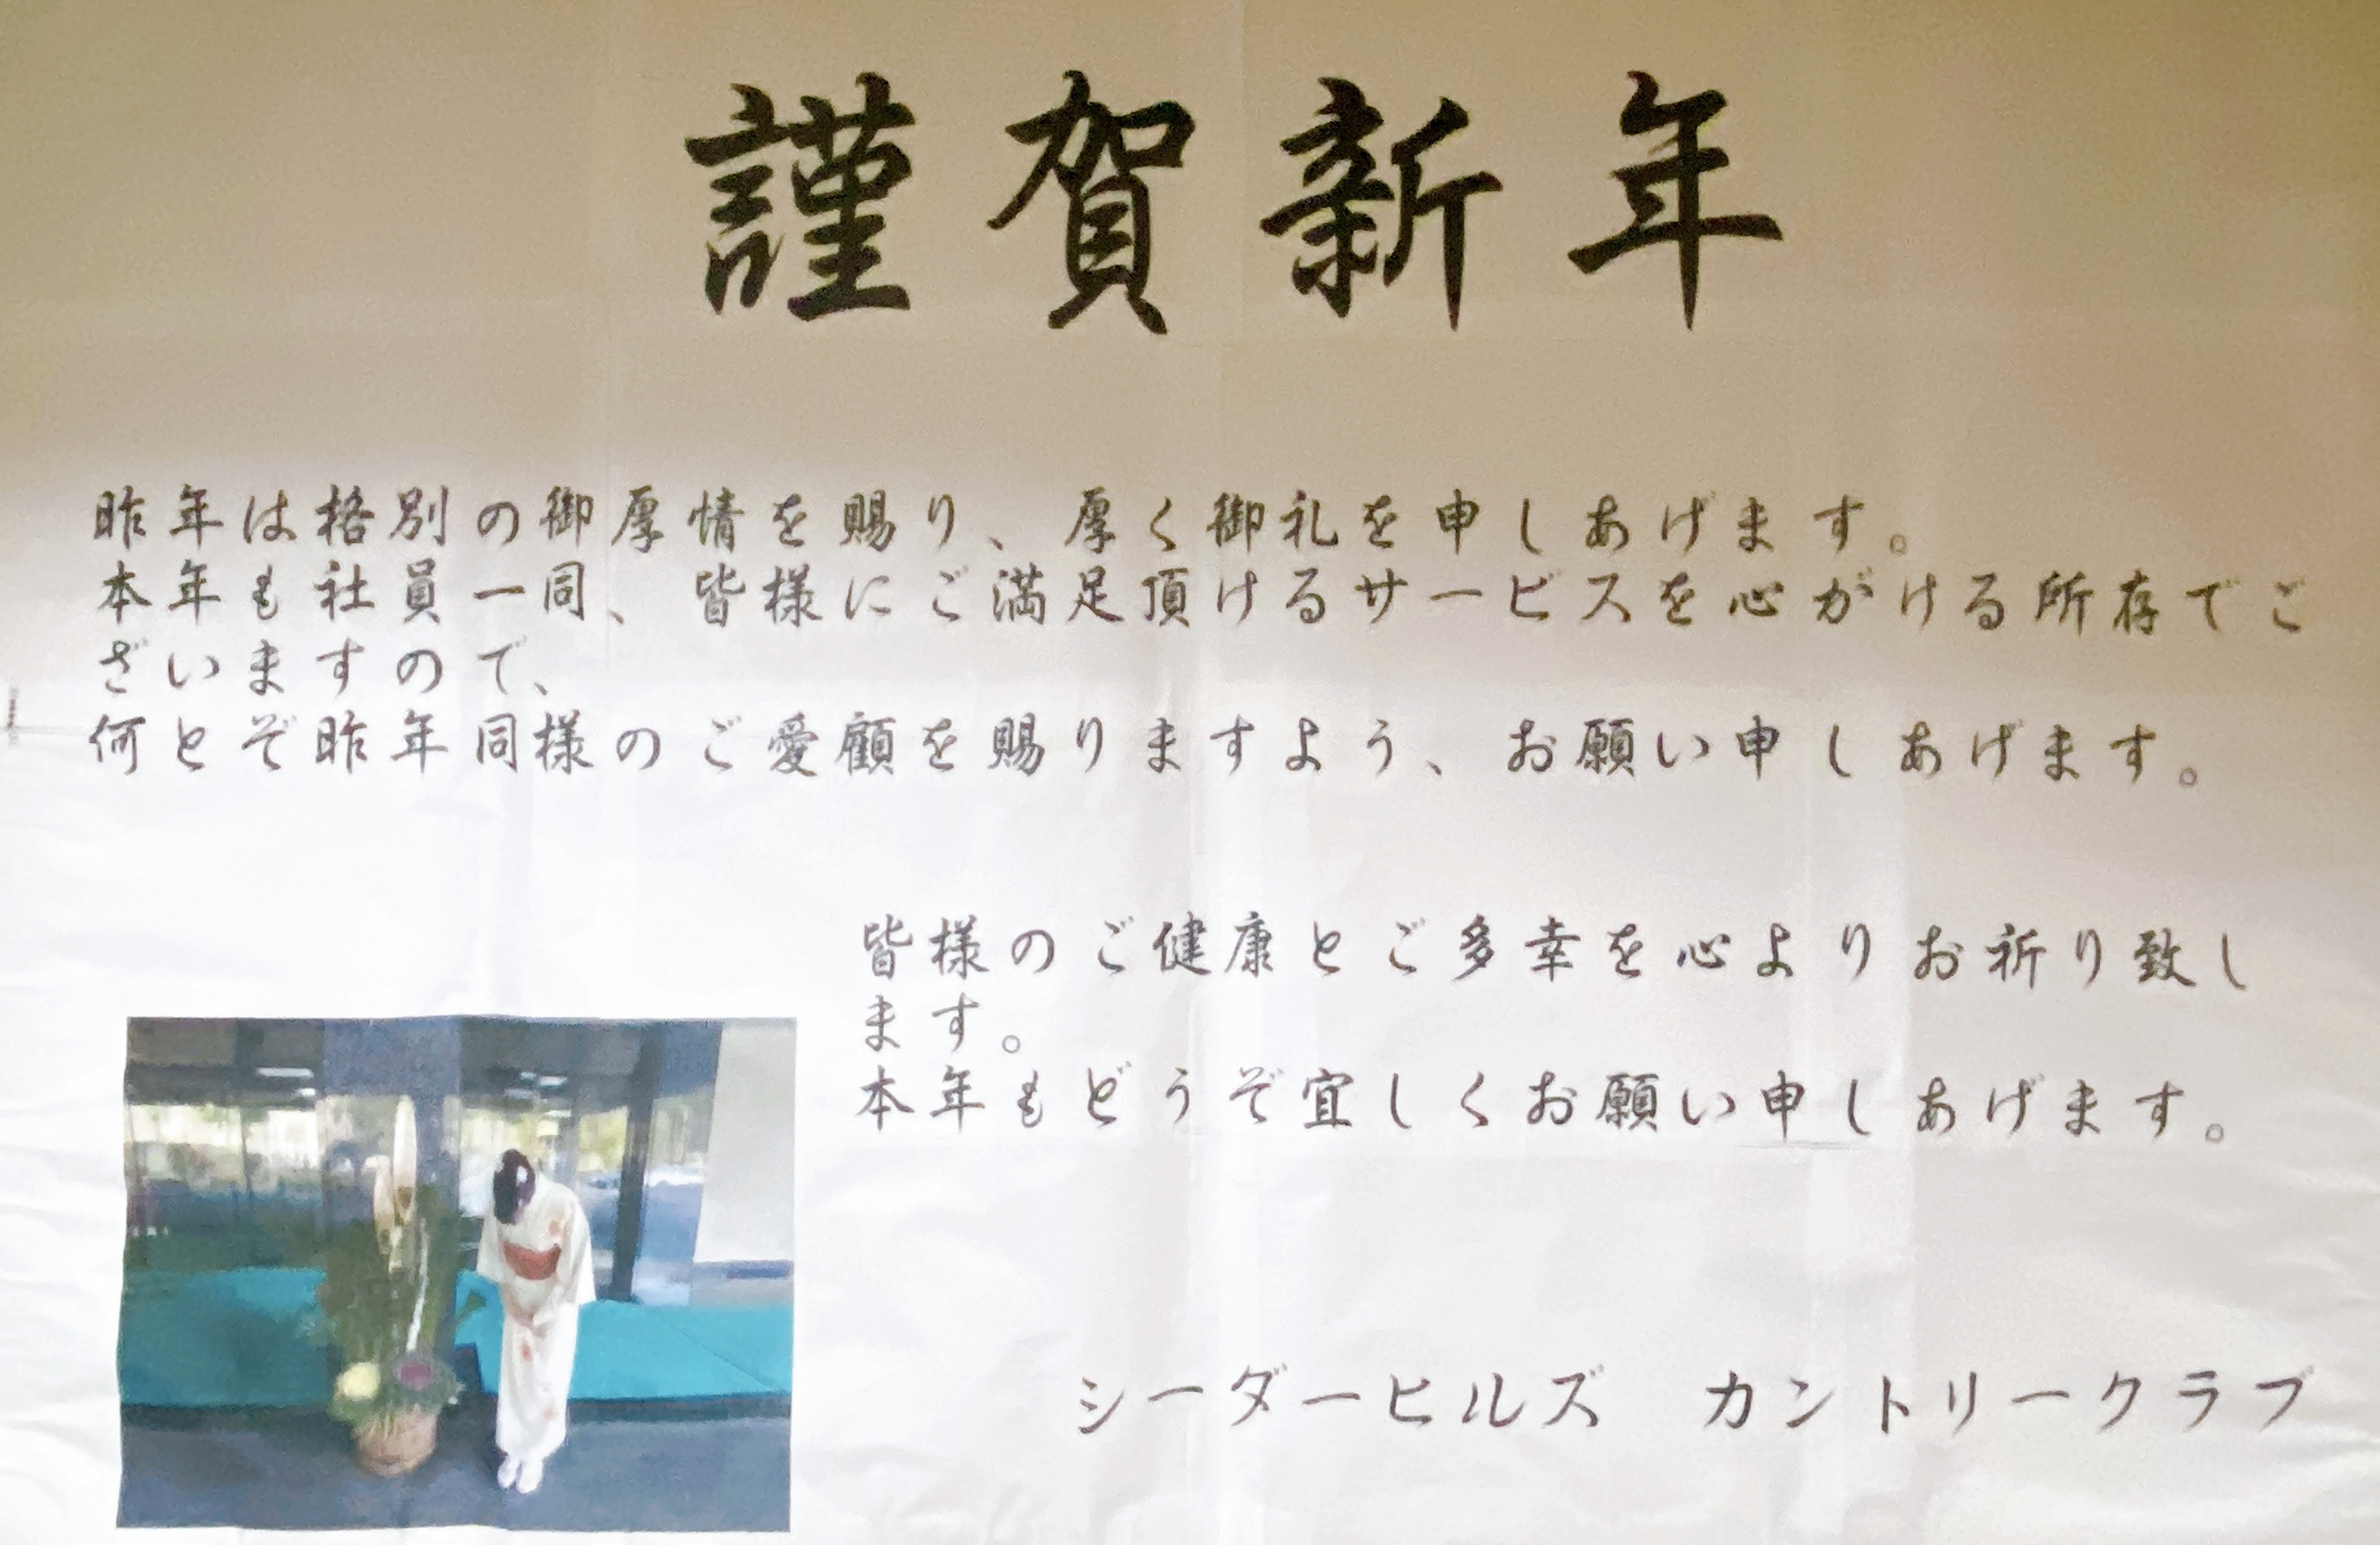 謹賀新年
昨年は格別の御厚情を賜り、厚く御礼を申しあげます。
本年も社員一同、皆様にご満足頂けるサービスを心がける所存でご
ざいますので、
何とぞ昨年同様のご愛顧を賜りますよう、お願い申しあげます。
皆様のご健康とご多幸を心よりお祈り致し
ます。
本年もどうぞ宜しくお願い申しあげます。
シーダーヒルズ　カントリークラブ